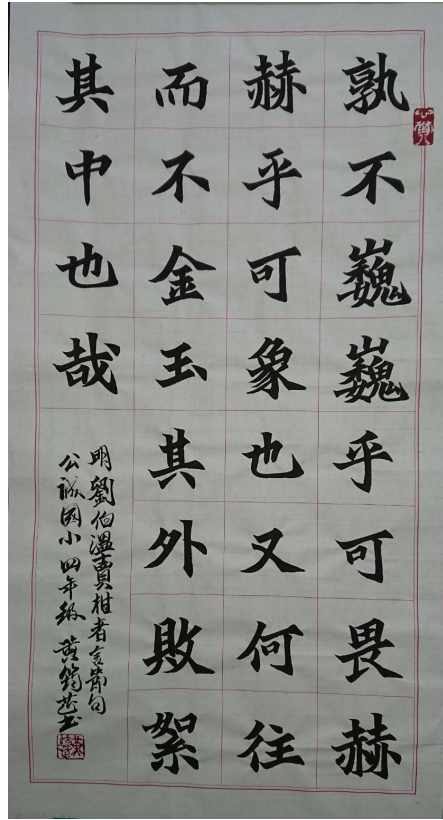 孰不巍巍乎可畏赫
赫乎可象也又何往
而不金玉其外敗絮
其中也哉
明劉伯溫賣柑者言節句
公誠國小四年級黃筠